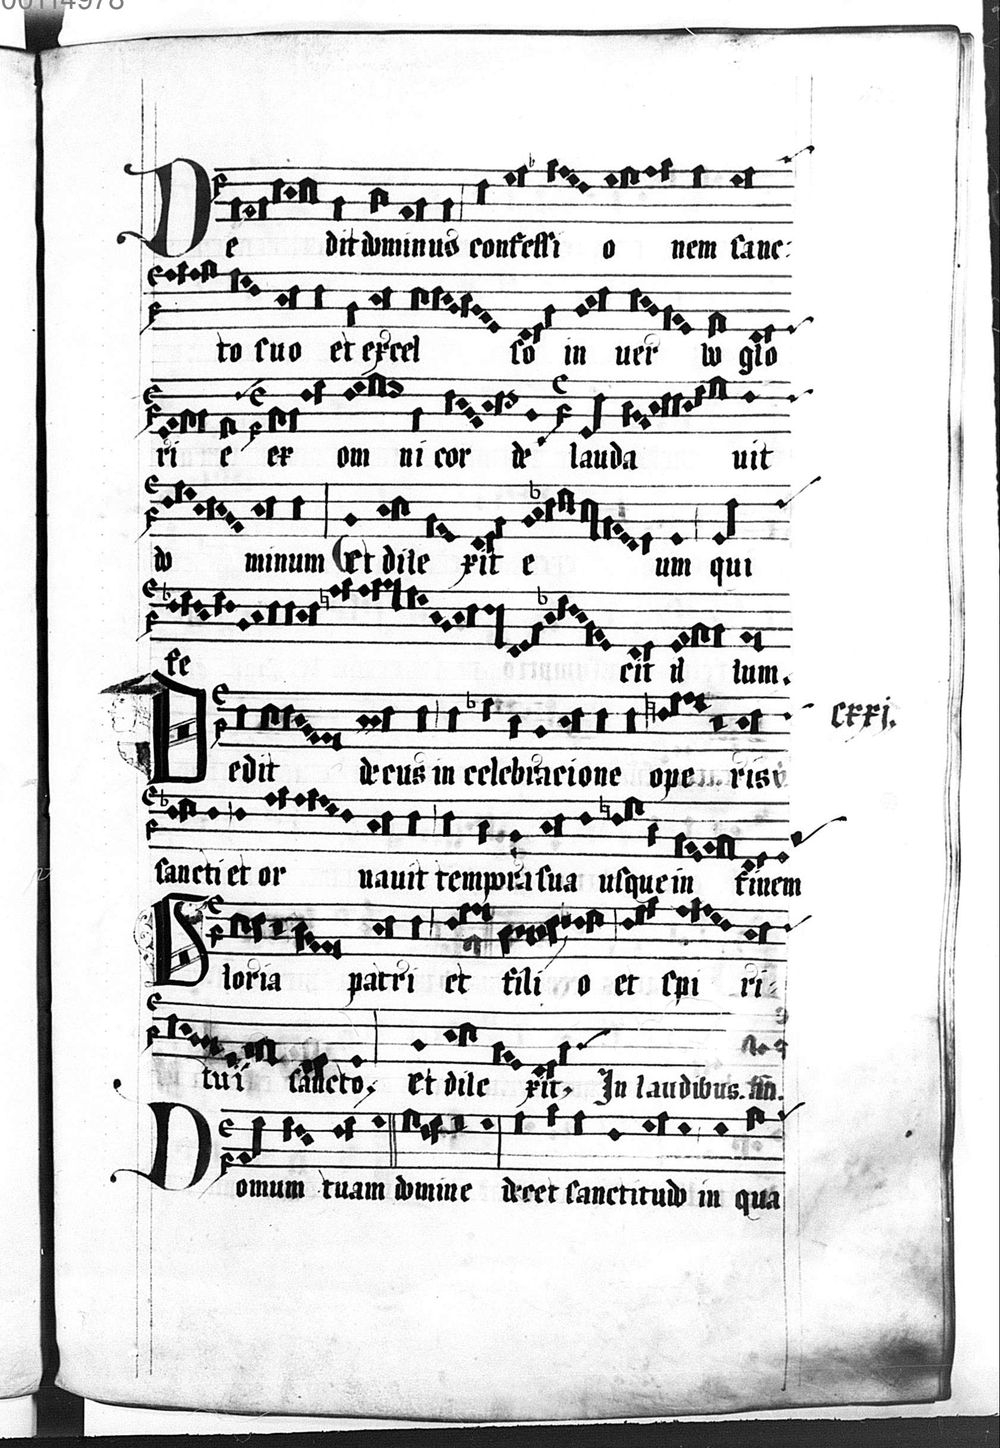 00114978
De dit dominus confessi o nem sanc-
to suo et excel so in uer bo glo
ri e ex om ni cor de lauda uit
do minum Et dile xit e um qui
fe cit il lum.
Dedit decus in celebracione ope ris
cxxj.
sancti et or nauit tempora sua usque in finem
Gloria patri et fili o et spi ri-
tui sancto, Et dile xit, In laudibus. an.
Domum tuam domine decet sanctitudo in qua